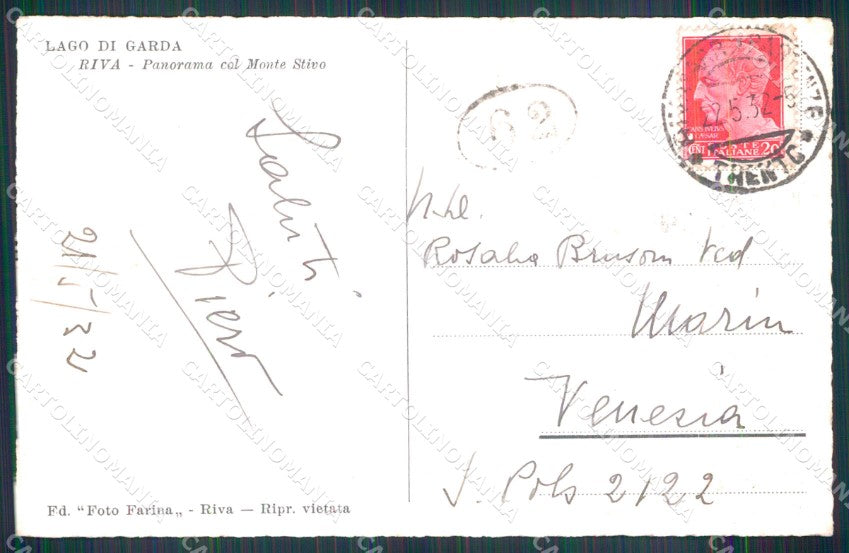 LAGO DI GARDA
RIVA - Panorama col Monte Stivo
Saluti
Piero
21/5/32
Fd. "Foto Farina„ - Riva — Ripr. vietata
62
22.5.32-8
TRENTO
CENT ITALIANE 20
Rosalia Brusom Ved
Marin
Venezia
S. Polo 2122
CARTOLINOMANIA